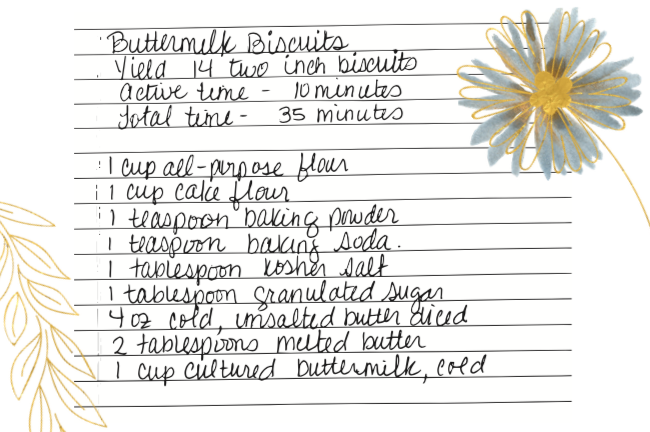 Buttermilk Biscuits
Yield 14 two inch biscuits
Active time - 10 minutes
Total time - 35 minutes
1 cup all-purpose flour
1 cup cake flour
1 teaspoon baking powder
1 teaspoon baking soda.
1 tablespoon kosher salt
1 tablespoon granulated sugar
4 oz cold, unsalted butter diced
2 tablespoons melted butter
1 cup cultured buttermilk, cold